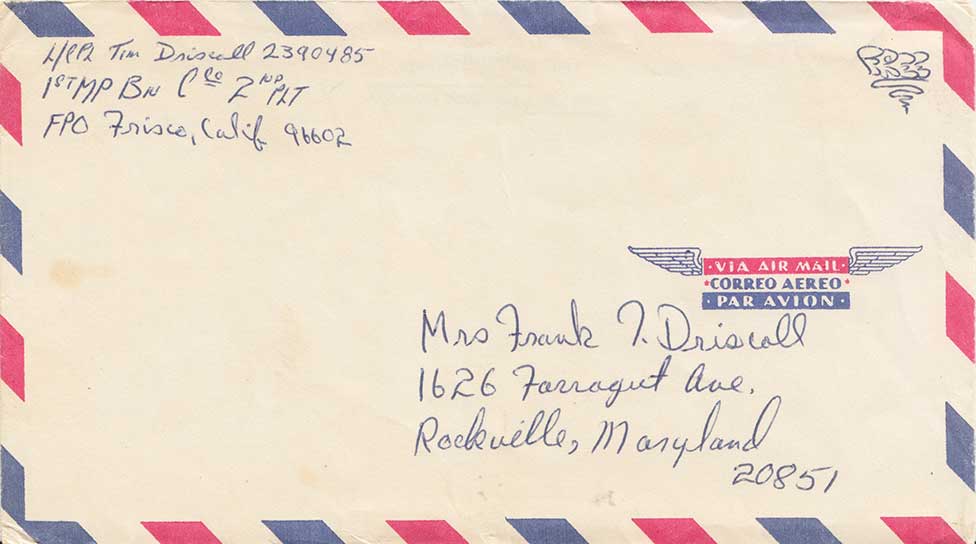 L/CPL Tim Driscoll 2390485
1ST MP BN C CO 2ND PLT
FPO Frisco, Calif 96602
· VIA AIR MAIL ·
· CORREO AEREO ·
· PAR AVION ·
Mrs Frank T. Driscoll
1626 Farragut Ave.
Rockville, Maryland
20851